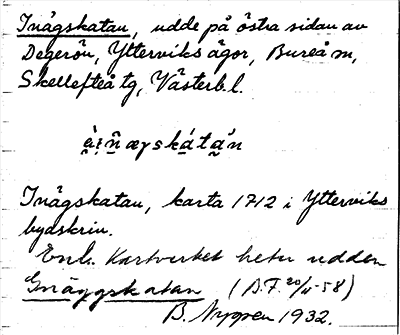 Inägskatan, udde på östra sidan av
Degerön, Ytterviks ägor, Bureå sn,
Skellefteå tg, Västerb. l.
Inägskatan, karta 1712 i Ytterviks
bydskrin.
Enl. Kartverket heter udden
Gnäggskatan (B.F. 20/11-58)
B. Nygren 1932.